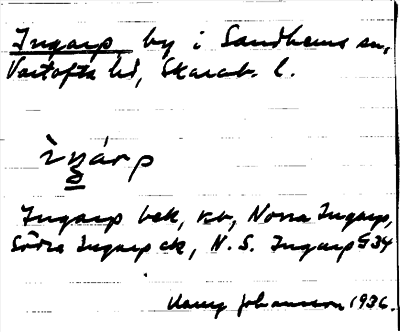 Ingarp by i Sandhems sn,
Vartofta hd, Skarab. l.
ìŋárp
Ingarp bek, kb, Norra Ingarp,
Södra Ingarp ek, N. S. Ingarp G 34
Harry Johansson 1936.